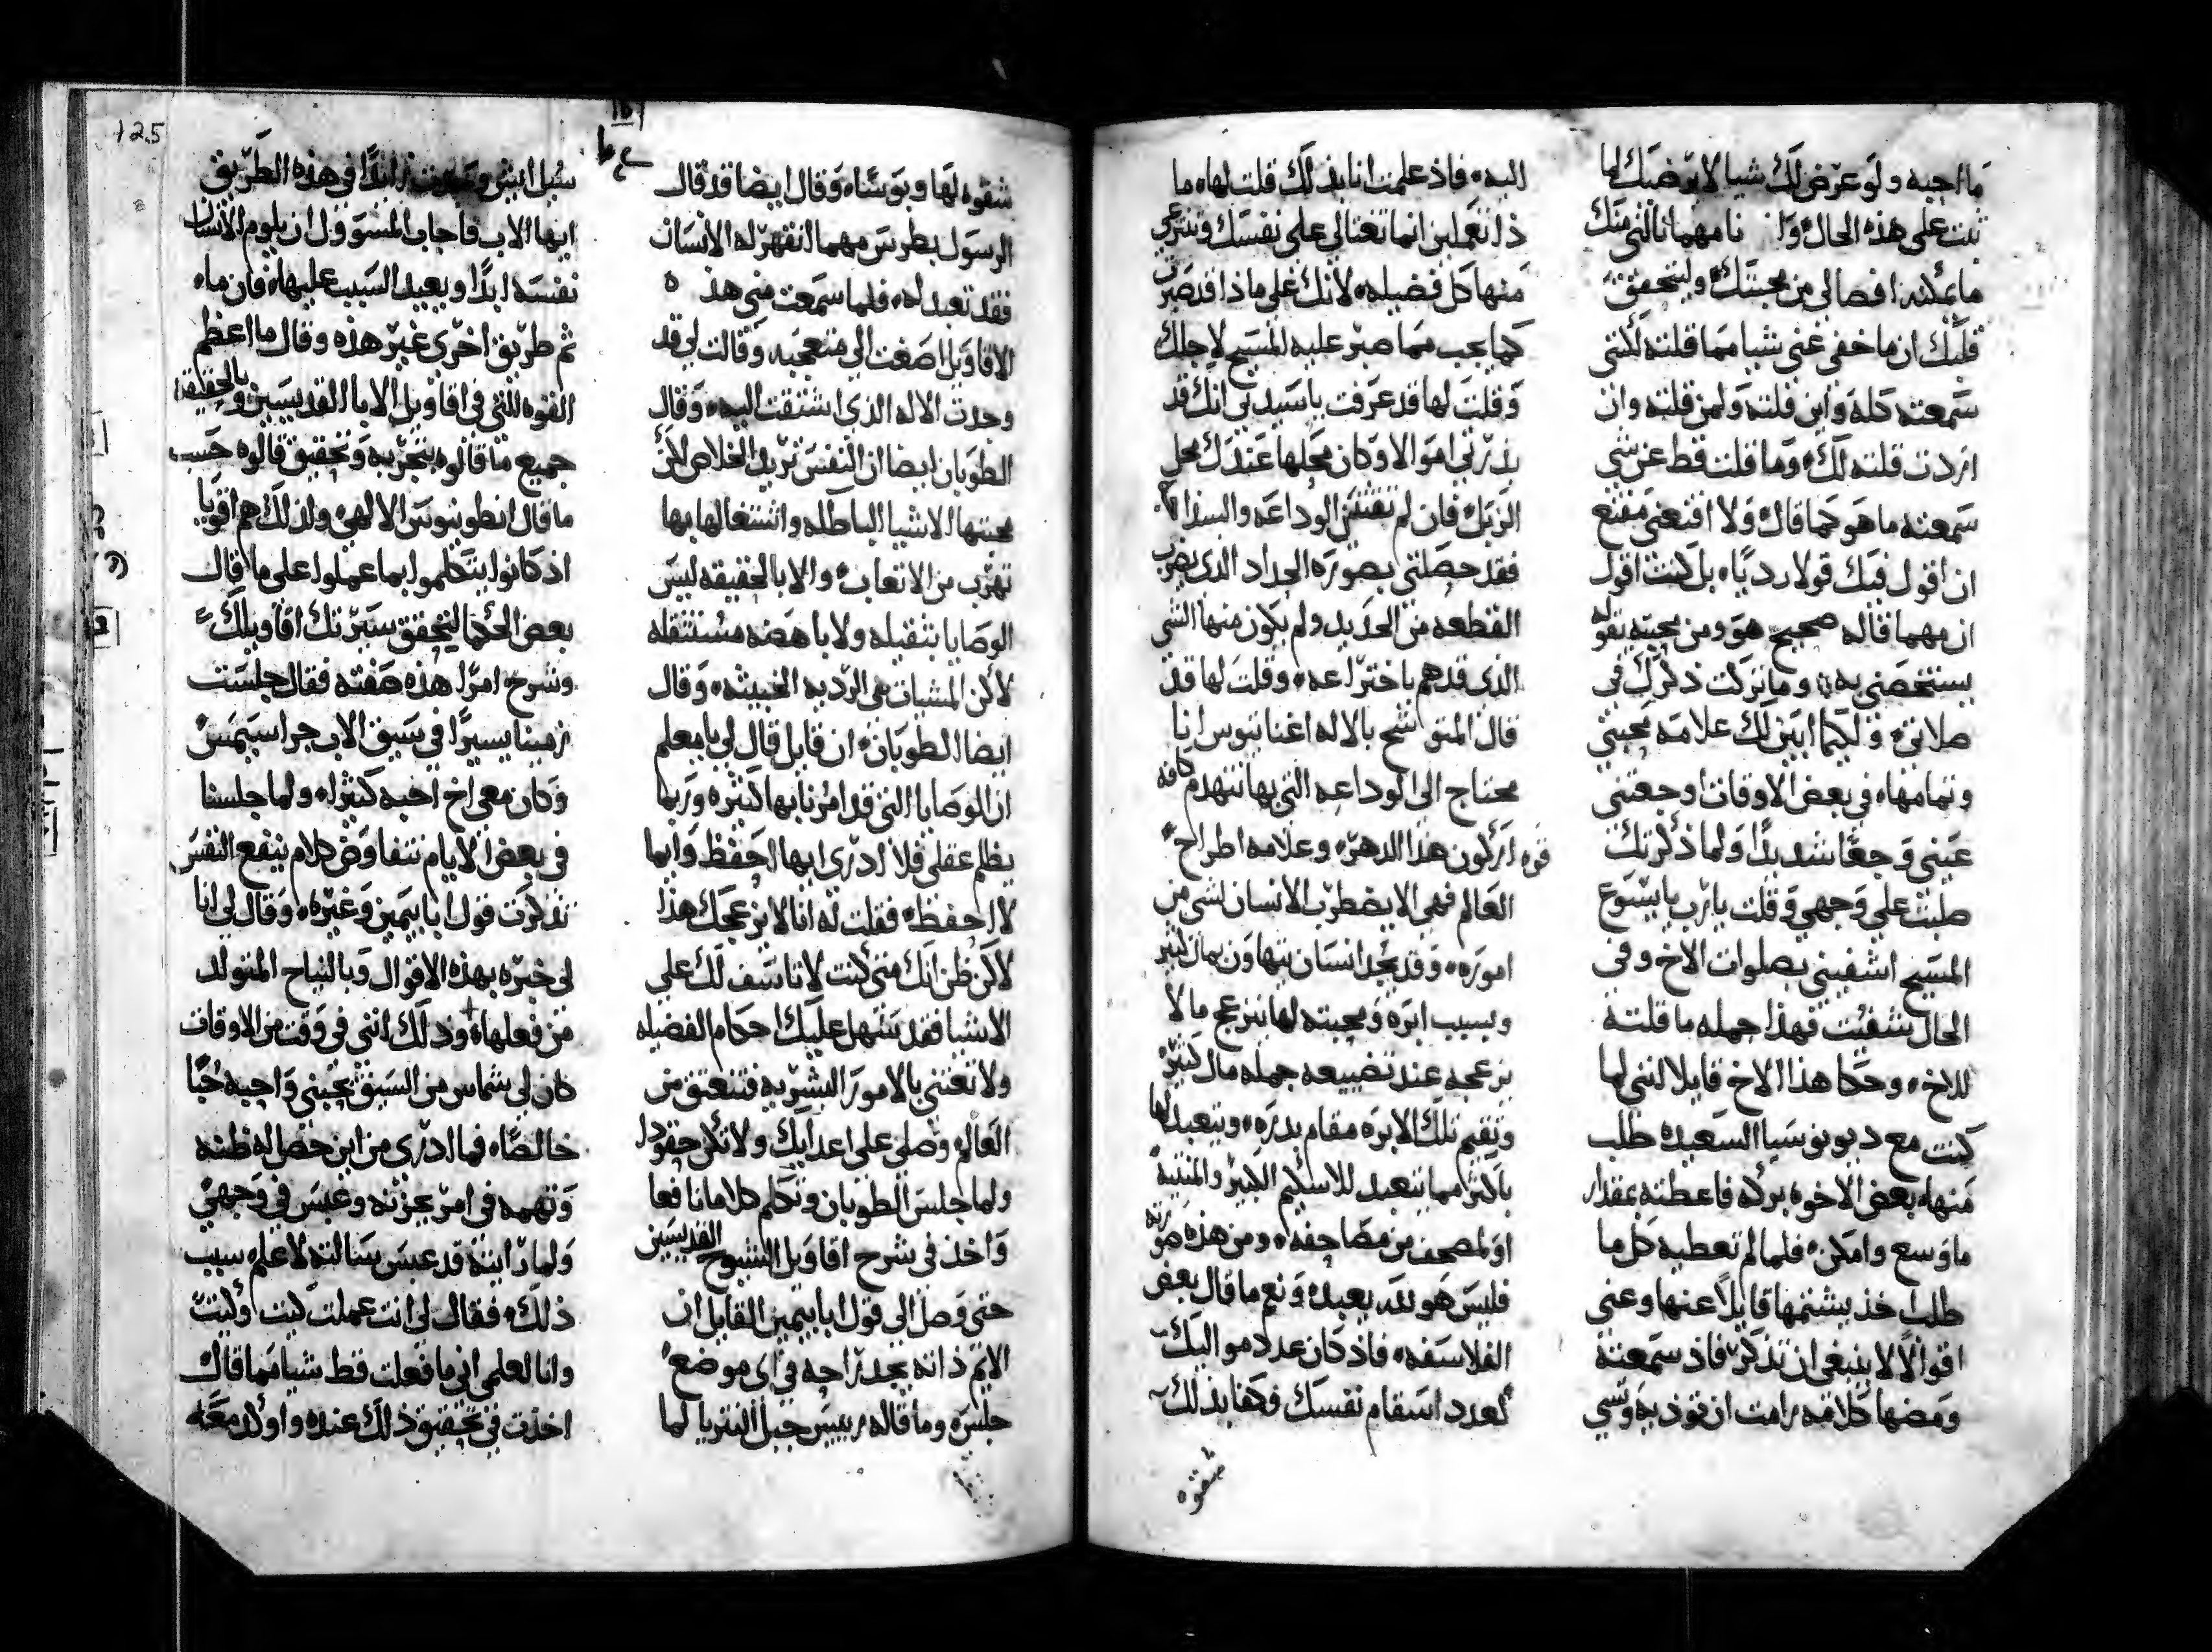 ما احبه ولو عرض لك شيا لا يرضيك لما
ثبت على هذه الحال وانا مهما نالني منك
ما يمكنه افصالي من محبتك وليتحقق
قلبك ان ما خفى عني شيا مما قلته لكنني
سمعته كله واين قلته ولمن قلته وان
اردت قلته لك وما قلت قط عن شي
سمعته ما هو كما قال ولا اقنعني مقنع
ان اقول فيك قولا رديا بل كنت اقول
ان مهما قاله صحيح هو ومن محبته يقوله
يستخصني به وما تركت ذكرك في
صلاتي ولكيما ابين لك علامه محبتي
وتمامها في بعض الاوقات اوجعتني
عيني وجعا شديدا ولما ذكرتك
صلبت على وجهي وقلت يا رب يا يسوع
المسيح اشفيني بصلوات الاخ وفي
الحال شفيت فهذا جمله ما قلته
للاخ وحكا هذا الاخ قايلا انني لما
كنت مع ديونوسيا السعيده طلب
منها بعض الاخوه بركه فاعطته بمقدار
ما وسع وامكن فلما لم تعطيه كل ما
طلب اخذ يشتمها قايلا عنها وعني
اقوالا لا ينبغي ان تذكر فاذ سمعته
ومضها كلامه رامت ان توذيه وتسي
اليه فاذ علمت انا بذلك قلت لها ما
ذا تعملين انما تغتالي على نفسك وتنزعي
منها كل فضيله لانك على ماذا قد صبرت
كما يجب مما صبر عليه المسيح لاجلك
وقلت لها قد عرفت يا سيدتي انك قد
بذرتي اموالا وكان محلها عندك محل
الزبل فان لم تقتني الوداعه والسذاجه
فقد حصلتي بصورة الحداد الذي يضرب
القطعه من الحديد ولم يكون منها الشي
الذي قد هم باختراعه وقلت لها قد
قال المتوشح بالاله اغناتيوس انا
محتاج الى الوداعه التي بها تنهدم كافه
قوه اركون هذا الدهر وعلامه اطراح
العالم فهي الا يضطرب الانسان لشي من
اموره وقد نجد انسان يتهاون بمال كثير
وبسبب ابره ومحبته لها ينزعج ما لا
يزعجه عند تضييعه جمله مال كثير
وتقيم تلك الابره مقام بدره ويتعبد لها
باكثر مما يتعبد للاسكيم الكبير والمنتيه
او لمصحف من مصاحفه ومن هذه صورته
فليس هو لله يعبد ونعم ما قال بعض
الفلاسفه فاذ كان عدد مواليك
لعدد اسقام نفسك وكفا بذلك
شقوه
شقوه لها وبوسا وقال ايضا قد قال
الرسول بطرس مهما انقهر له الانسان
فقد تعبد له فلما سمعت مني هذه
الاقاويل اصغت الي متعجبه وقالت لي قد
وجدت الاله الذي اشتقت اليه وقال
الطوبان ايضا ان النفس تريد الخلاص لكن
محبتها الاشيا الباطله واشتغالها بها
تهرب من الاتعاب والا بالحقيقه ليس
الوصايا بثقيله ولا باهضه مستثقله
لاكن المشيات هي الرديه الخبيثه وقال
ايضا الطوبان ان قايل قال لي يا معلم
ان الوصايا التي قد امرنا بها كثيره وربما
يظلم عقلي فلا ادري ايها احفظ وايما
لا احفظ فقلت له انا لا يزعجك هذا
لاكن ظن انك متى كنت لا تاسف لك على
الاشيا فقد يسهل عليك احكام الفضيله
ولا تعتني بالامور البشريه فتنعتق من
العالم وصلي على اعدايك ولا تكن حقودا
ولما جلس الطوبان وتكلم كلاما نافعا
واخذ في شرح اقاويل الشيوخ القديسين
حتى وصل الى قول ابا بيمين القايل ان
الايم ذاته يجد راحه في اي موضع
جلس وما قاله رييس جبل النتريا لما
سيل ايش وجدت زايدا في هذه الطريق
ايها الاب فاجاب المسوول ان يلوم الانسان
نفسه ابدا ويعيد السبب عليها فان ما
ثم طريق اخرى غير هذه وقال ما اعظم
القوه التي في اقاويل الابا القديسين وبالحقيقه
جميع ما قالوه بتجربه وتحقيق قالوه حسب
ما قال انطونيوس الالهي ولذلك هم اقويا
اذ كانوا يتكلموا بما عملوا على ما قال
بعض الحكما ليتحقق سيرتك اقاويلك
وشرح امرا هذه صفته فقال جلست
زمينا يسيرا في سيق الاب جراسيمس
وكان معي اخ احبه كثيرا ولما جلسنا
في بعض الايام نتفاوض كلام ينفع النفس
تذكرت قول ابا بيمين وغيره وقال لي انا
لي خبره بهذه الاقوال وبالنياح المتولد
من فعلها وذلك انني في وقت من الاوقات
كان لي شماس من السيق يحبني واحبه حبا
خالصا فما ادري من اين حصل له ظنه
وتهمه في امر يحزنه وعبس في وجهي
ولما رايته قد عبس سالته لاعلم سبب
ذلك فقال لي انت عملت كيت وكيت
وانا لعلمي اني ما فعلت قط شيا مما قال
اخذت في تحقيق ذلك عنده واوكد معه
125